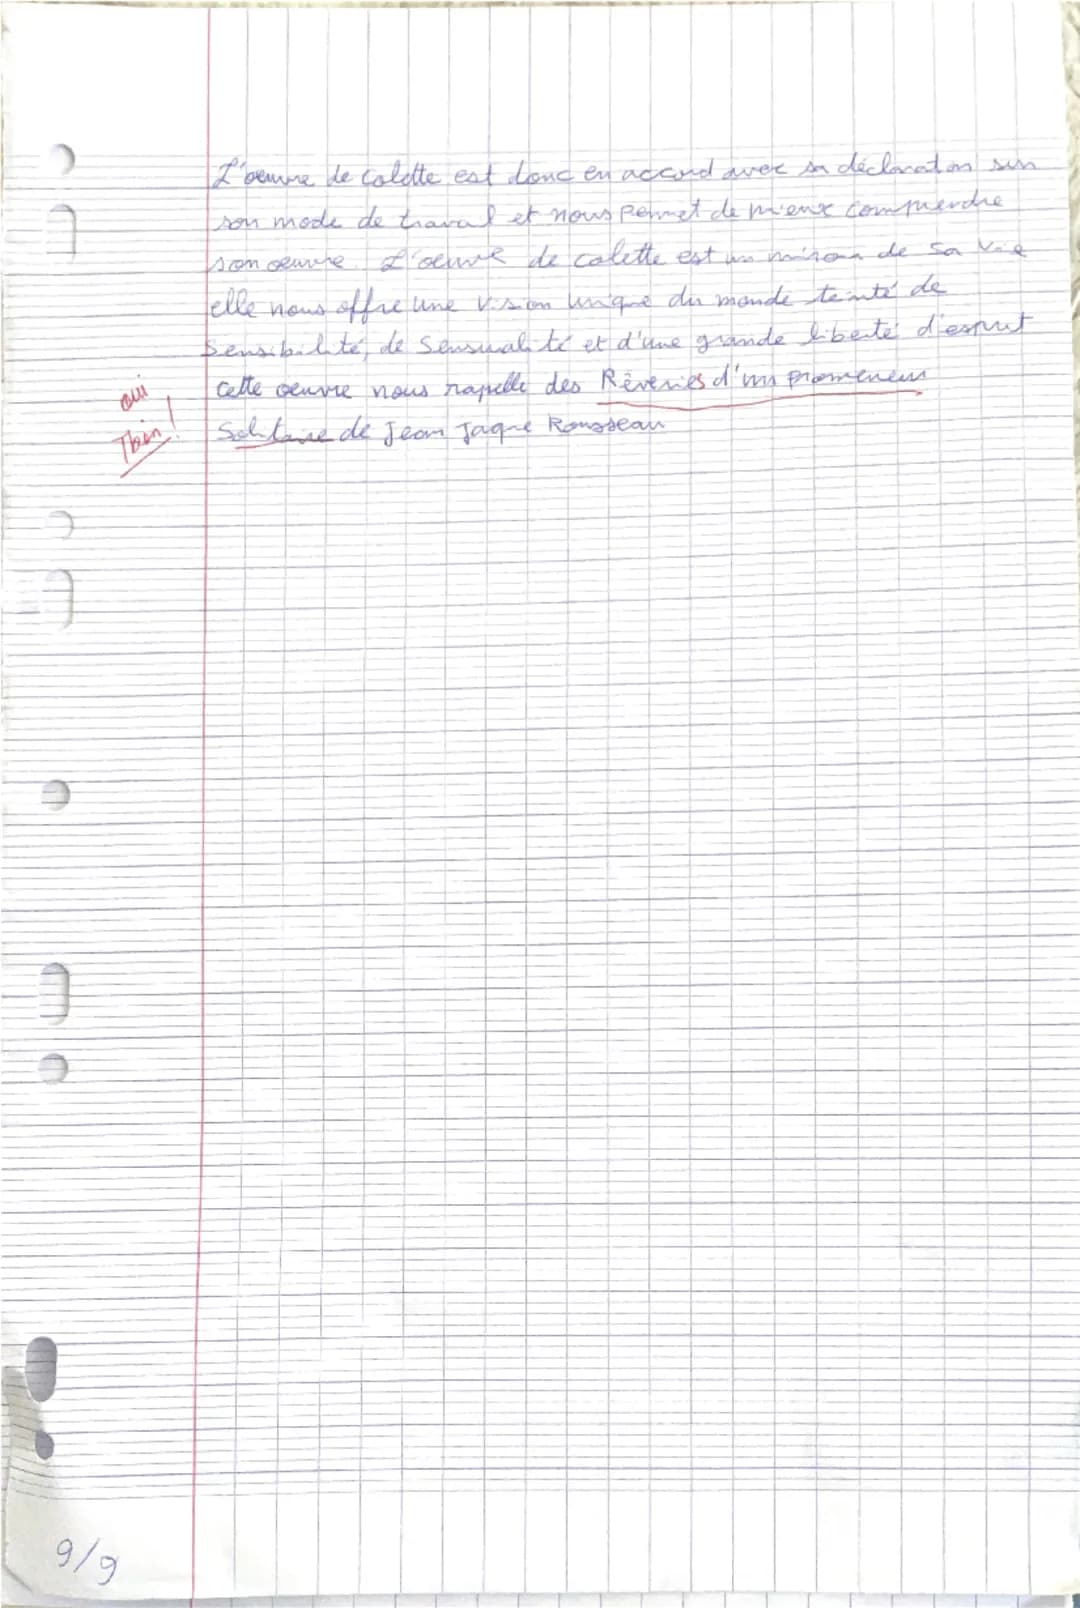 L'oeuvre de colette est donc en accord avec sa déclaration sur
son mode de travail et nous permet de mieux comprendre
son oeuvre. L'oeuvre de colette est un miroir de sa vie
elle nous offre une vision unique du monde teinté de
sensibilité, de sensualité et d'une grande liberté d'esprit
cette oeuvre nous rapelle des Rêveries d'un promeneur
oui
Tbien!
Solitaire de Jean Jaque Rousseau
9/9